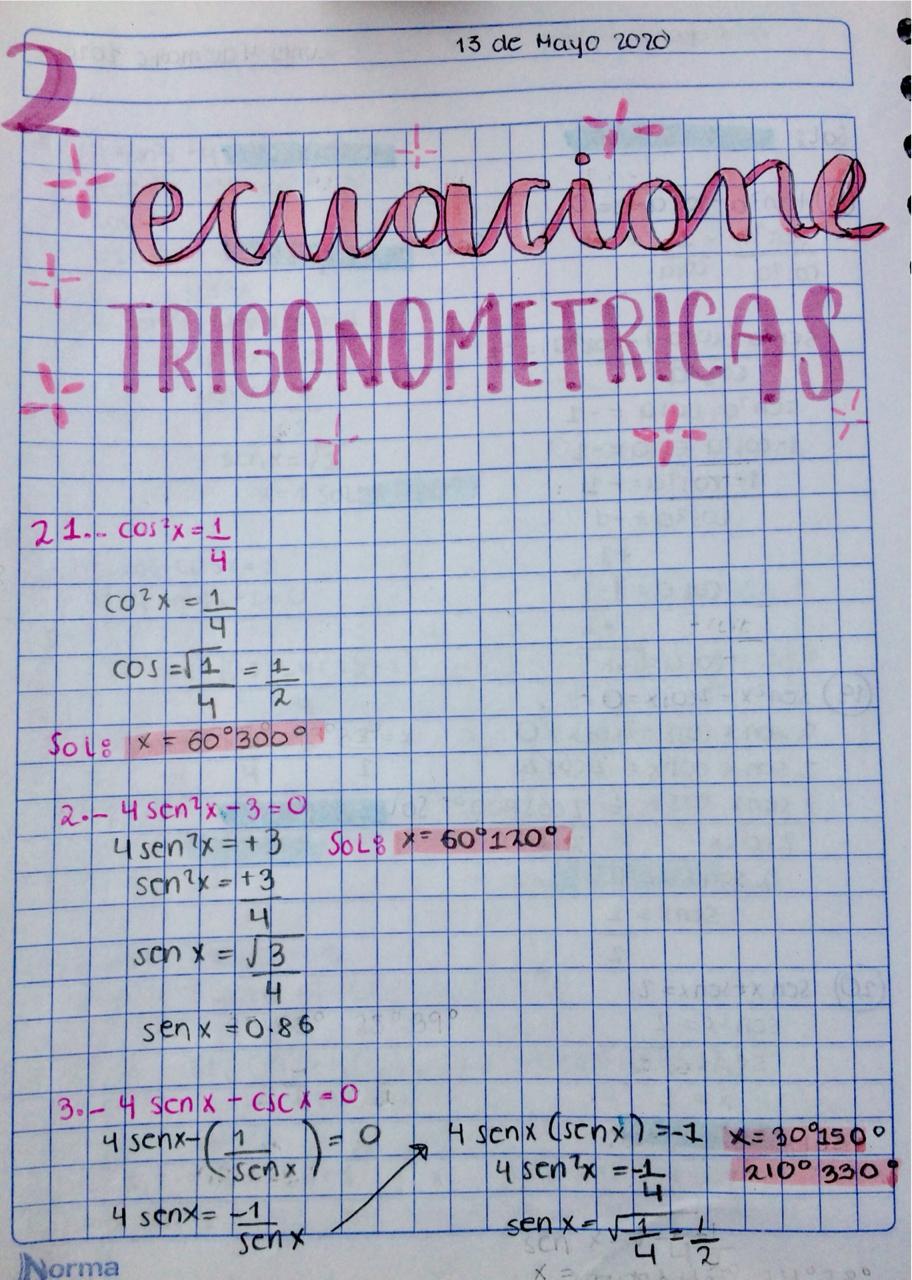 13 de Mayo 2020
2
ecuacione
TRIGONOMETRICAS
2 1.-- cos²x = 1/4
co²x = 1/4
cos = √1/4 = 1/2
Sol: x = 60° 300°
2.- 4 sen²x - 3 = 0
4 sen²x = +3 SOL: x = 60° 120°
sen²x = +3/4
sen x = √3/4
sen x = 0.86
3.- 4 sen x - csc x = 0
4 senx - (1/senx) = 0
4 senx = -1/senx
4 senx (senx) = -1 x = 30° 150°
4 sen²x = -1/4 210° 330°
sen x = √1/4 = 1/2
Norma